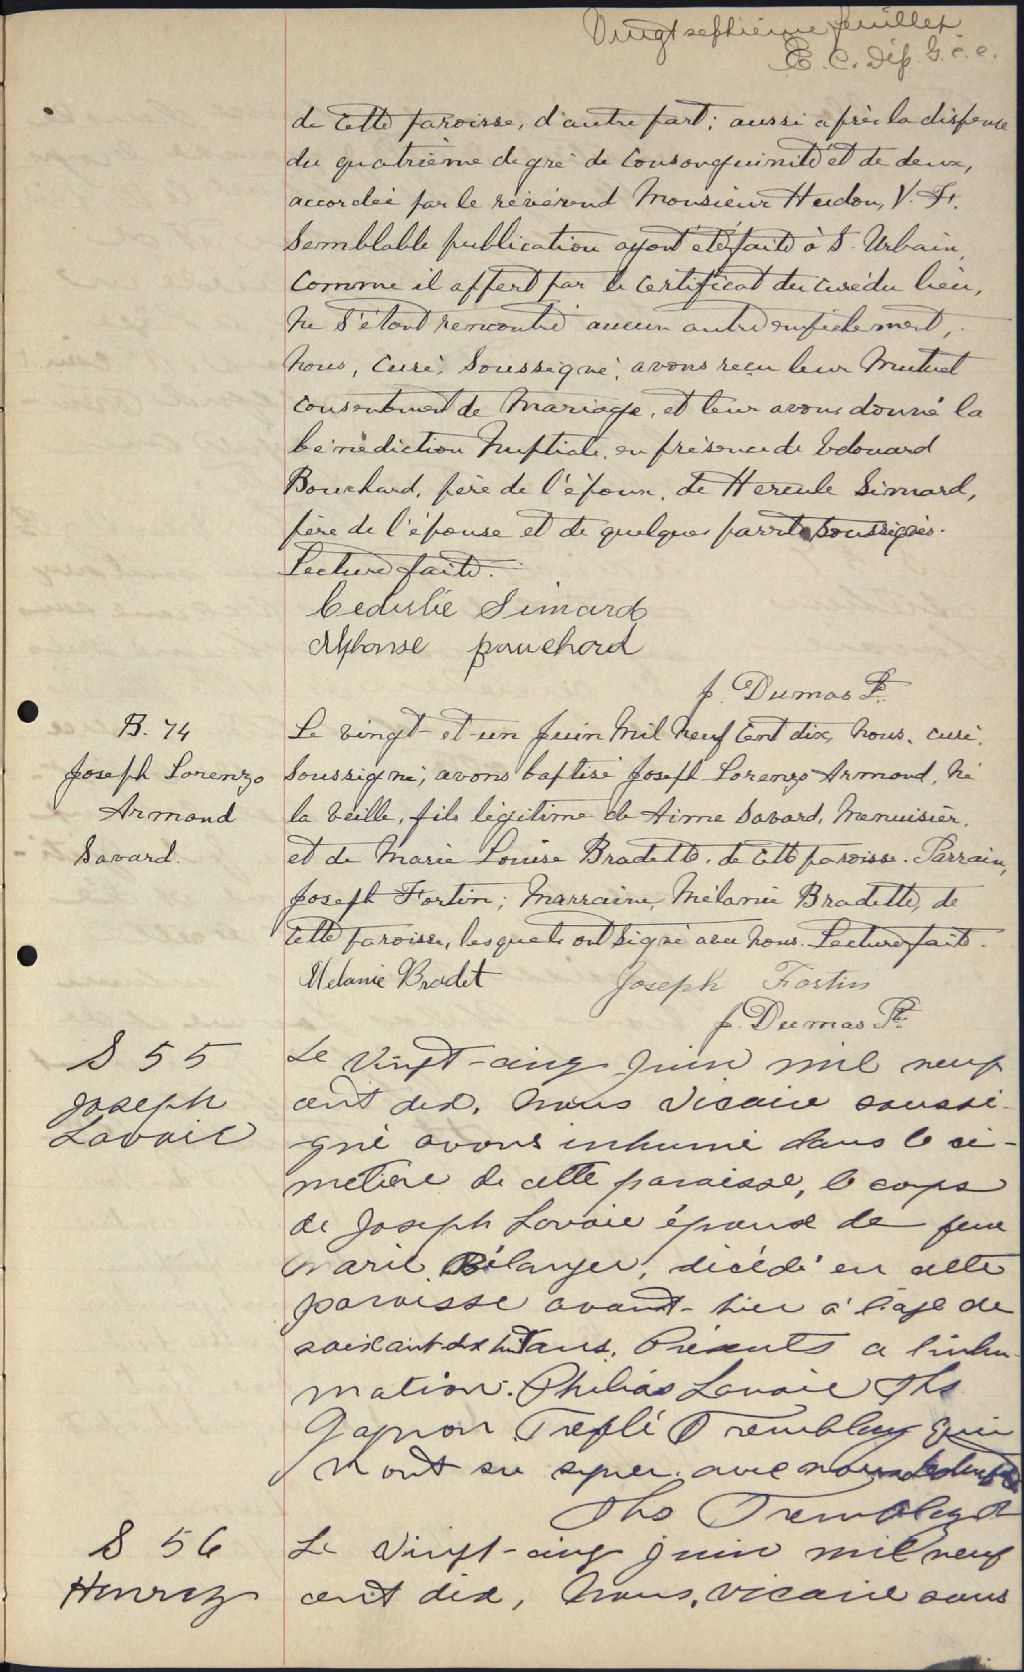 Vingt septième feuillet
E. C. Dép. G. C. C.
de cette paroisse, d'autre part; aussi après la dispense
du quatrième degré de consanguinité et de deux,
accordée par le révérend Monsieur Hudon, V. F.
Semblable publication ayant été faite à S. Urbain,
comme il appert par le certificat du curé du lieu,
ne s'étant rencontré aucun autre empêchement,
nous, curé, soussigné, avons reçu leur mutuel
consentement de mariage, et leur avons donné la
bénédiction nuptiale, en présence de Edouard
Bouchard, père de l'époux, de Hercule Simard,
père de l'épouse et de quelques parents soussignés.
Lecture faite.
Cedulie Simard
Alphonse Bouchard
J. Dumas Ptr.
B. 74
Joseph Lorenzo
Armand
Savard.
Le vingt-et-un juin mil neuf cent dix, nous, curé,
soussigné, avons baptisé Joseph Lorenzo Armand, né
la veille, fils légitime de Aimé Savard, menuisier,
et de Marie Louise Bradette, de cette paroisse. Parrain,
Joseph Fortin; Marraine, Mélanie Bradette, de
cette paroisse, lesquels ont signé avec nous. Lecture faite.
Mélanie Bradet Joseph Fortin
J. Dumas Ptr.
S 55
Joseph
Lavoie
Le vingt-cinq juin mil neuf
cent dix, nous vicaire soussi-
gné avons inhumé dans le ci-
metière de cette paroisse, le corps
de Joseph Lavoie époux de feue
Marie Bélanger, décédé en cette
paroisse avant-hier à l'âge de
soixant-dix huit ans. Présents a l'inhu-
mation: Philias Lavoie Ths
Gagnon Trefflé Tremblay qui
n'ont su signer avec nous
Ths Tremblay
S 56
Henry
Le vingt-cinq juin mil neuf
cent dix, nous, vicaire sous